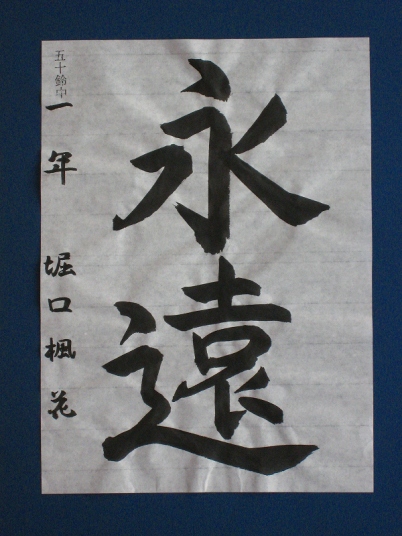 永遠
五十鈴中
一年 堀口楓花